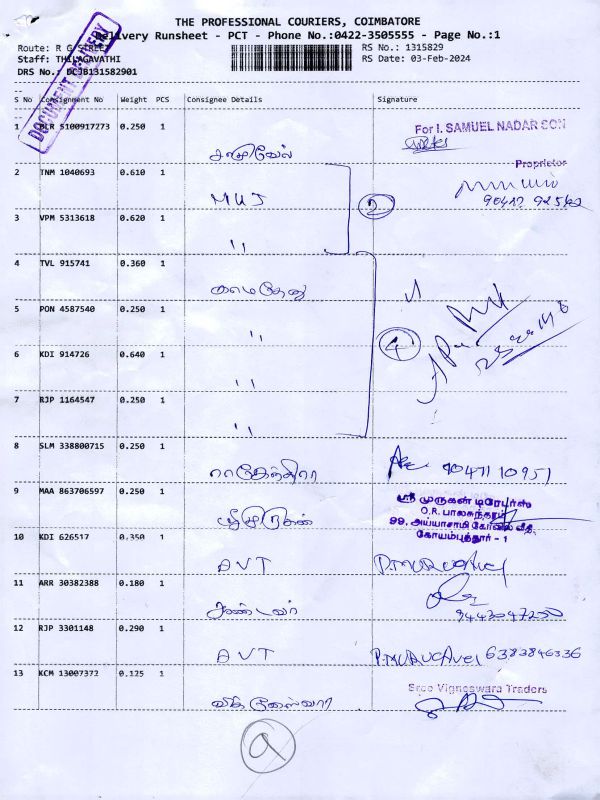 THE PROFESSIONAL COURIERS, COIMBATORE
Delivery Runsheet - PCT - Phone No.:0422-3505555 - Page No.:1
Route: R G STREET
RS No.: 1315829
Staff: THILAGAVATHI
RS Date: 03-Feb-2024
DRS No.: DCJB131582901
DOCUMENT DELIVERY
S No Consignment No Weight PCS Consignee Details Signature
1 BLR 5100917273 0.250 1
For I. SAMUEL NADAR SON
சாமுவேல்
Proprietor
2 TNM 1040693 0.610 1
MUJ
2
3 VPM 5313618 0.620 1
"
4 TVL 915741 0.360 1
காமதேனு
5 PON 4587540 0.250 1
"
4
6 KDI 914726 0.640 1
"
7 RJP 1164547 0.250 1
"
8 SLM 338800715 0.250 1
ராஜேந்திரா 9047110951
9 MAA 863706597 0.250 1
ஸ்ரீ முருகன் டிரேடர்ஸ்
O.R. பாலசுந்தரம்
99, அய்யாசாமி கோவில் வீதி,
கோயம்புத்தூர் - 1
ஸ்ரீமுருகன்
10 KDI 626517 0.350 1
AVT P.MURUGAvel
11 ARR 30382388 0.180 1
9443047250
12 RJP 3301148 0.290 1
AVT P.MURUGAvel 6383846336
13 KCM 13007372 0.125 1
Sree Vigneswara Traders
விக்னேஸ்வரா
9